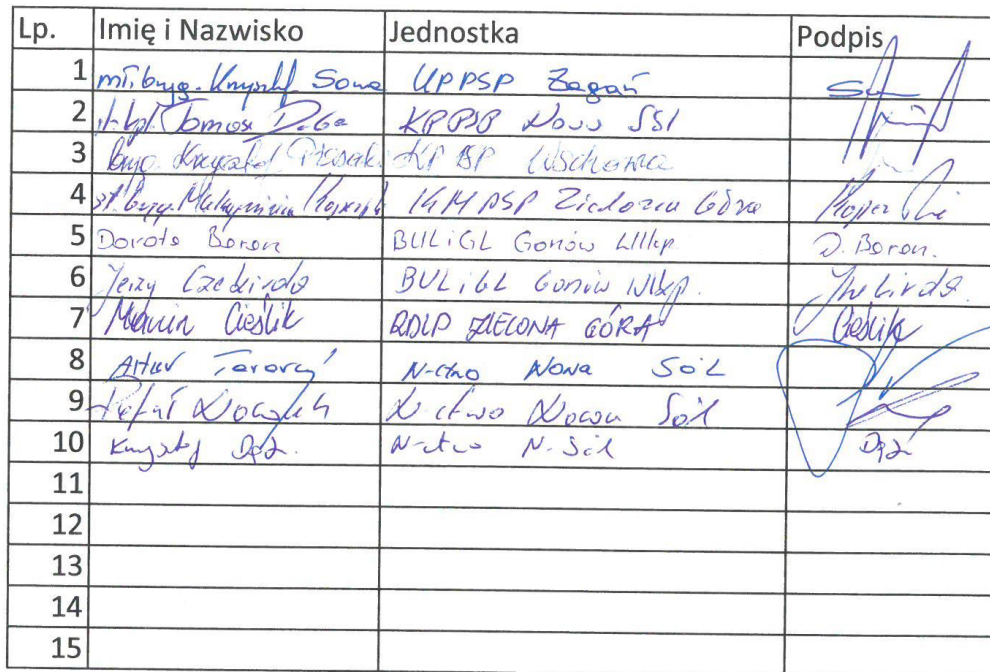 Lp. Imię i Nazwisko Jednostka Podpis
1 mł. bryg. Krzysztof Sowa KPPSP Żagań
2 st. kpt. Tomasz Duba KPPSP Nowa Sól
3 bryg. Krzysztof KP PSP Wschowa
4 st. bryg. KM PSP Zielona Góra
5 Dorota Boron BULiGL Gorzów Wlkp. D. Boron.
6 Jerzy BULiGL Gorzów Wlkp.
7 Marcin Cieślik RDLP ZIELONA GÓRA Cieślik
8 Artur N-ctwo Nowa Sól
9 Rafał N-ctwo Nowa Sól
10 Krzysztof Dąż. N-ctwo N. Sól Dąż
11
12
13
14
15